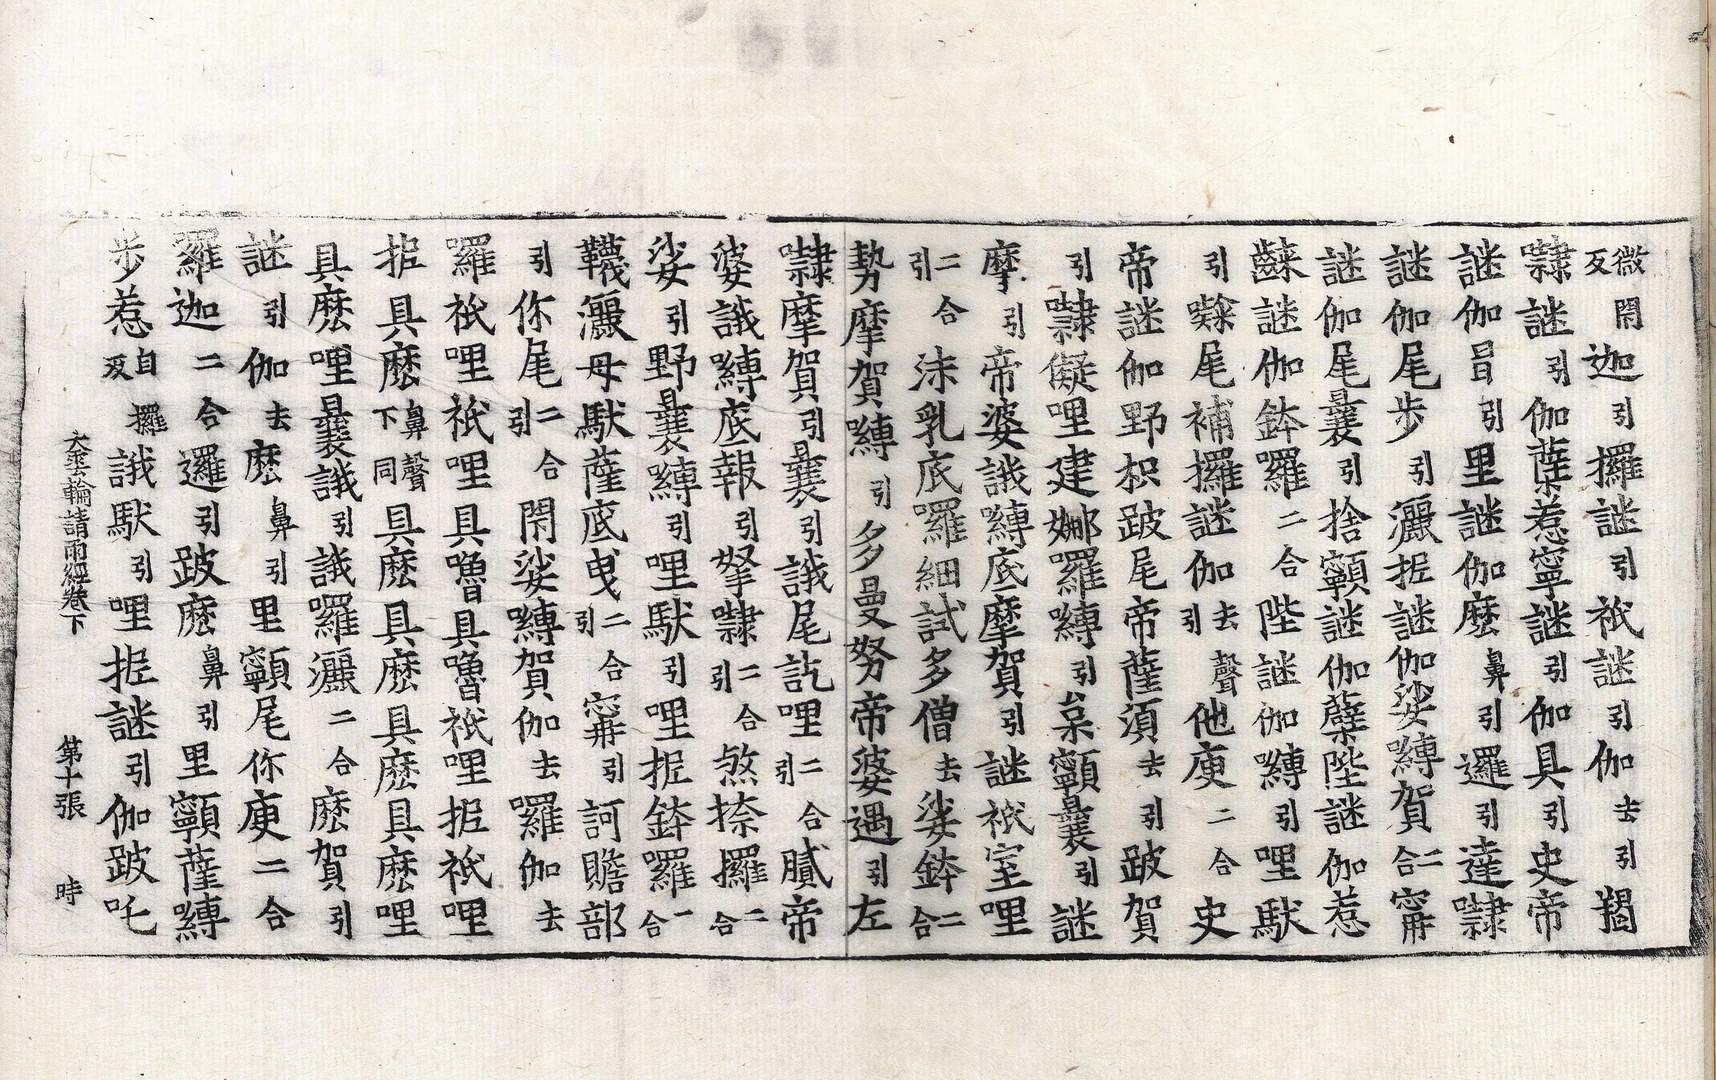 微閉反迦引攞謎引祇謎引伽去引羯
㘑謎引伽蘖惹寧謎引伽具引史帝
謎伽冒引里謎伽麼鼻引邏引達㘑
謎伽尾步引灑抳謎伽娑嚩賀二合甯
謎伽尾曩引捨顊謎伽蘖陛謎伽惹
謎伽鉢囉二合陛謎伽嚩引哩馱
引尾補攞謎伽去聲引他庾二合史
帝謎伽野枳跛尾帝薩須去引跛賀
引㘑儗哩建娜囉嚩引枲顊曩引謎
摩引帝婆誐嚩底摩賀引謎祇室哩
二合引沬乳底囉細試多僧去娑鉢二合
勢摩賀嚩引多曼努帝婆遇引左
㘑摩賀引曩引誐尾訖哩二合引膩帝
婆誐嚩底報引拏㘑二合引煞捺攞二合
娑引野曩嚩引哩馱引哩抳鉢囉一合
韈灑母馱薩底曳二合引甯引訶贍部
引你尾二合引閉娑嚩賀伽去囉伽去
囉祇哩祇哩具嚕具嚕祇哩抳祇哩
抳具麼鼻聲下同具麼具麼具麼具麼哩
具麼哩曩誐引誐囉灑二合麼賀引
謎引伽去麼鼻引里顊尾你庾二合
羅迦二合邏引跛麼鼻引里顊薩嚩
步惹自攞反誐馱引哩抳謎引伽跛吒
大雲輪請雨經卷下　第十張　時